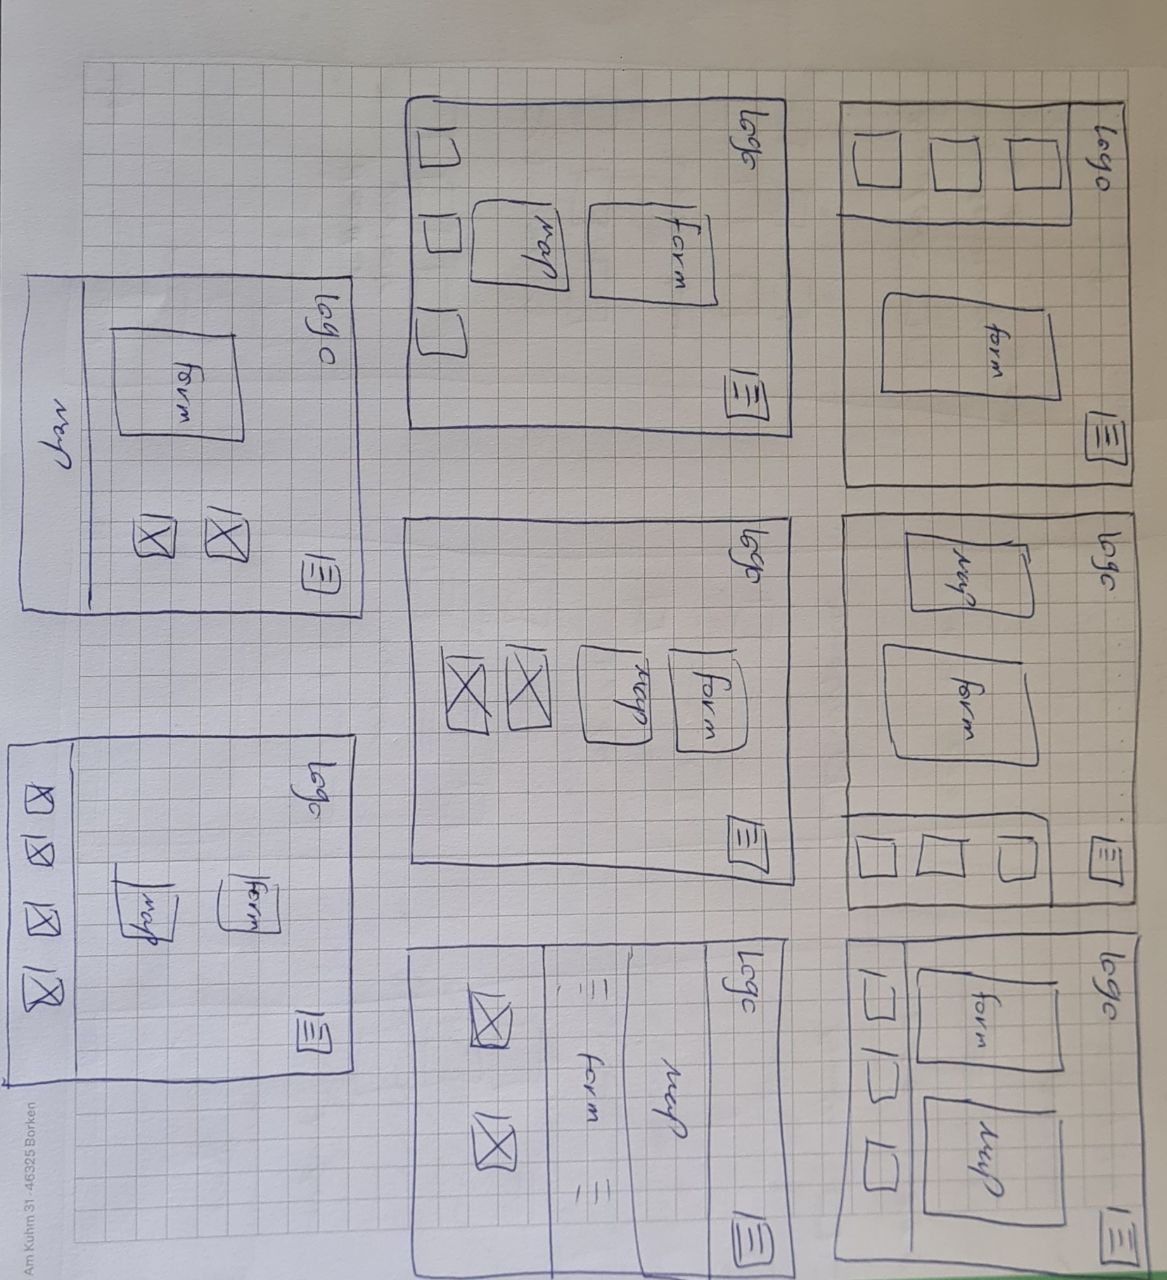 Logo
form
Logo
Map
form
Logo
form
Map
Logo
form
Map
Logo
form
Map
Logo
Map
form
Logo
form
Map
Logo
form
Map
Am Kuhm 31 · 46325 Borken